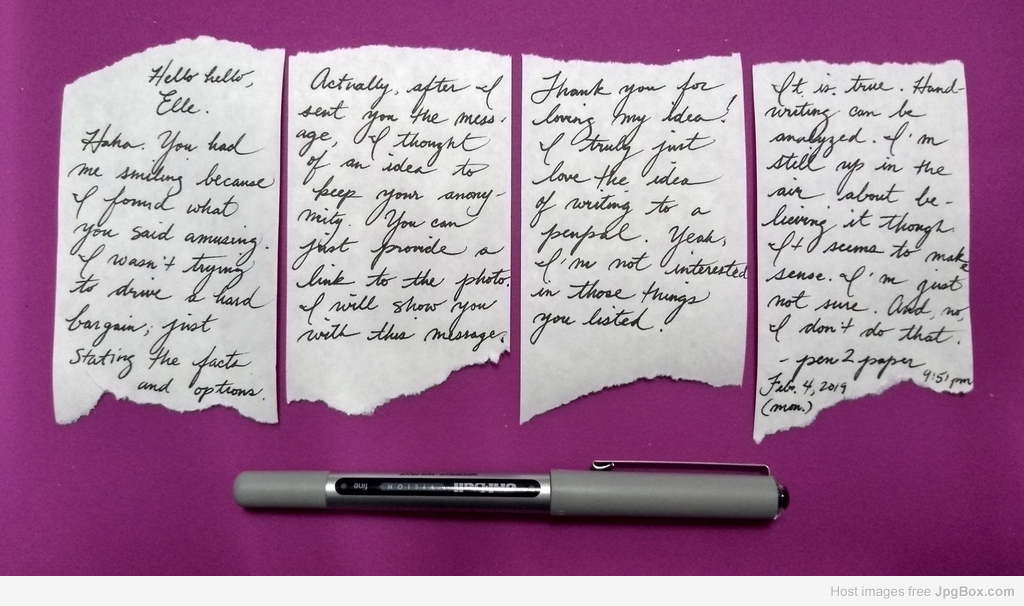 Hello hello,
Elle.
Haha. You had
me smiling because
I found what
you said amusing.
I wasn't trying
to drive a hard
bargain; just
stating the facts
and options.
Actually, after I
sent you the mess-
age, I thought
of an idea to
keep your anony-
mity. You can
just provide a
link to the photo.
I will show you
with this message.
Thank you for
loving my idea!
I truly just
love the idea
of writing to a
penpal. Yeah,
I'm not interested
in those things
you listed.
It is true. Hand-
writing can be
analyzed. I'm
still up in the
air about be-
lieving it though.
It seems to make
sense. I'm just
not sure. And, no,
I don't do that.
- pen2paper
9:51 pm
Feb. 4, 2019
(mon.)
uni-ball
VISION
fine
Host images free JpgBox.com